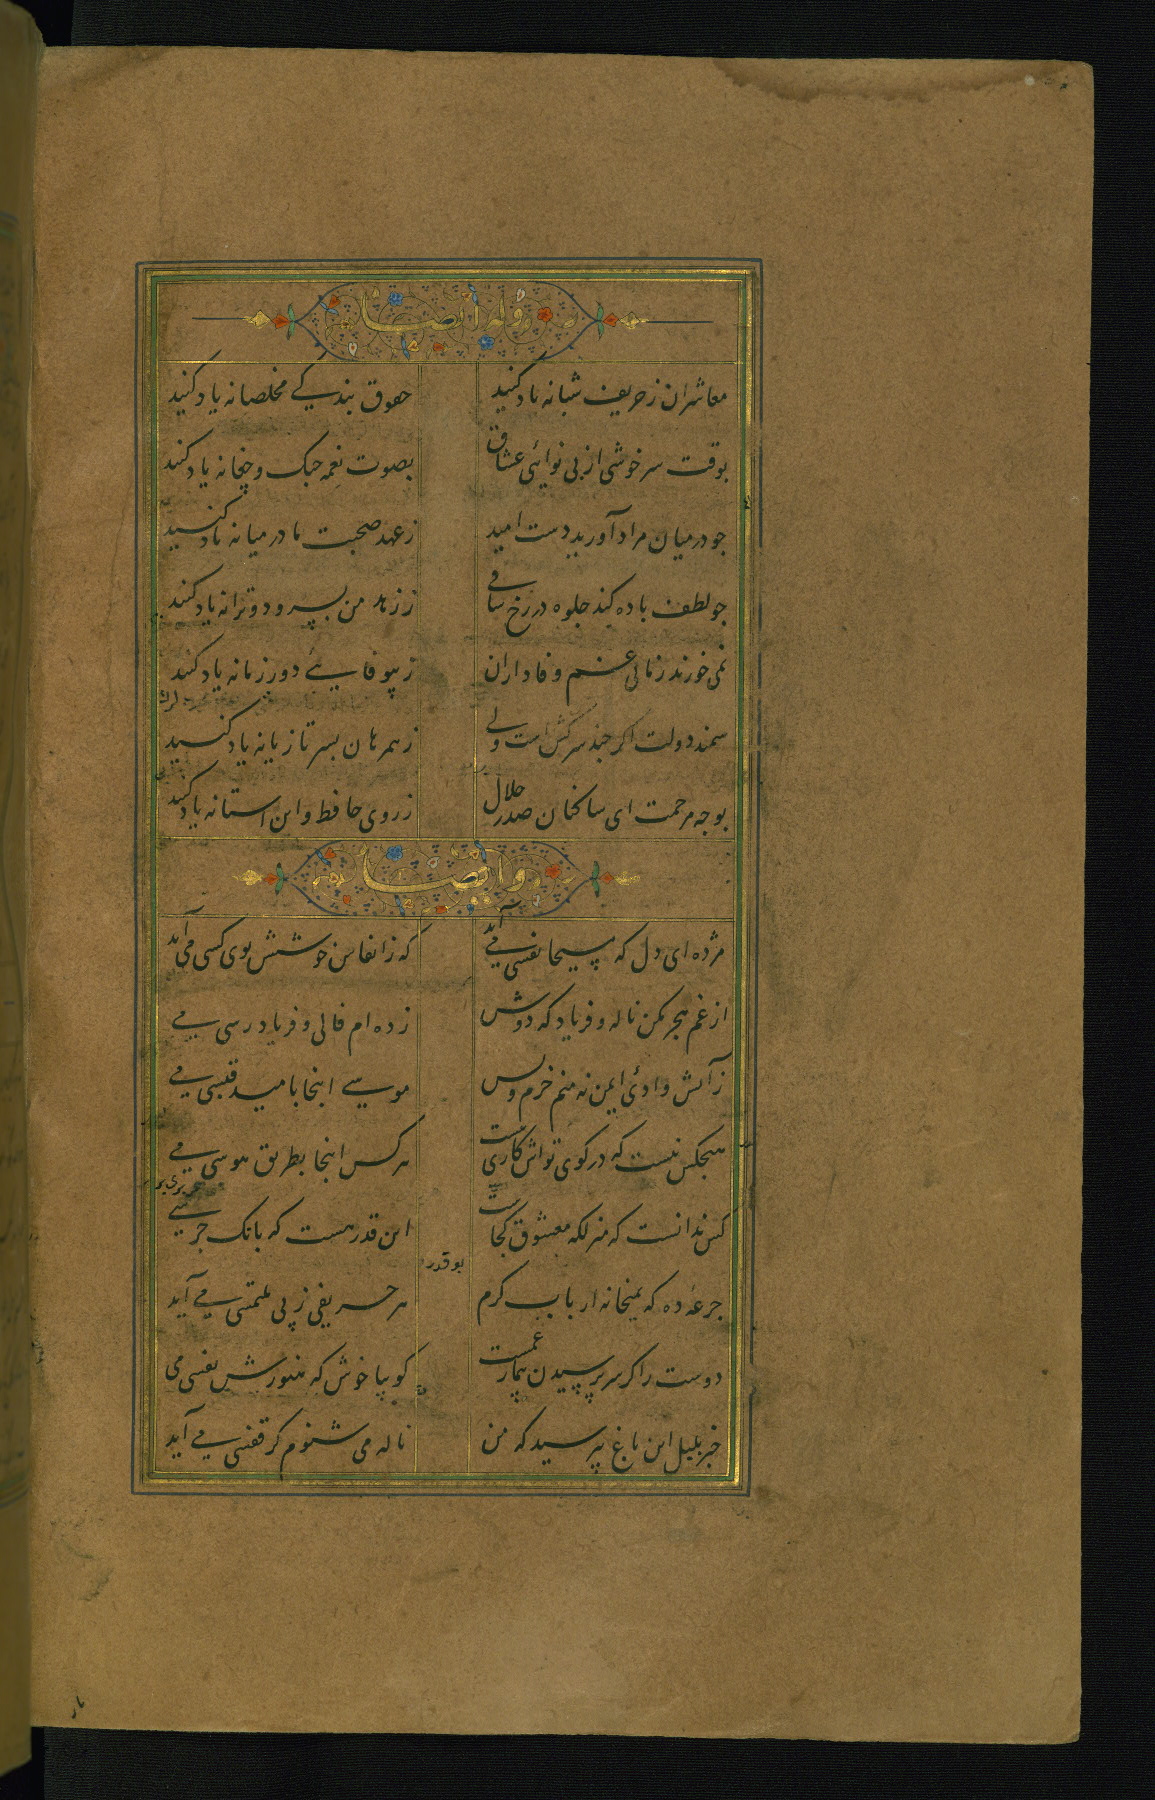 وله ایضا
معاشران ز حریف شبانه یاد کنید حقوق بندکی مخلصانه یاد کنید
بوقت سرخوشی از بی نوائی عشاق بصوت نغمه جنک و چغانه یاد کنید
جو در میان مراد آورید دست امید ز عهد صحبت ما در میانه یاد کنید
جو لطف باده کند جلوه در رخ ساقی ز من بسرود و ترانه یاد کنید
نمی خورند زمانی غم وفاداران ز بیوفایئ دور زمانه یاد کنید
سمند دولت اکر جند سرکش است ولی ز همرهان بسر تازیانه یاد کنید
بوجه مرحمت ای ساکنان صدر جلال ز روی حافظ و این استانه یاد کنید
و ایضا
مژده ای دل که مسیحا نفسی می آید که ز انفاس خوشش بوی کسی می آید
از غم هجر مکن ناله و فریاد که دوش زده ام فالی و فریاد رسی می
ز آتش وادئ ایمن نه منم خرم و بس موسی اینجا بامید قبسی می
هیجکس نیست که در کوی تواش کاری نیست هر کس اینجا بطریق هوسی می
کس ندانست که منزلکه معشوق کجاست این قدر هست که بانک جرسی
جرعهٔ ده که بمیخانه ارباب کرم هر حریفی ز پی ملتمسی می آید
دوست را کر سر پرسیدن بیمار غمست کو بیا خوش که هنوزش نفسی می
خبر بلبل این باغ بپرسید که من ناله می شنوم کز قفسی می آید